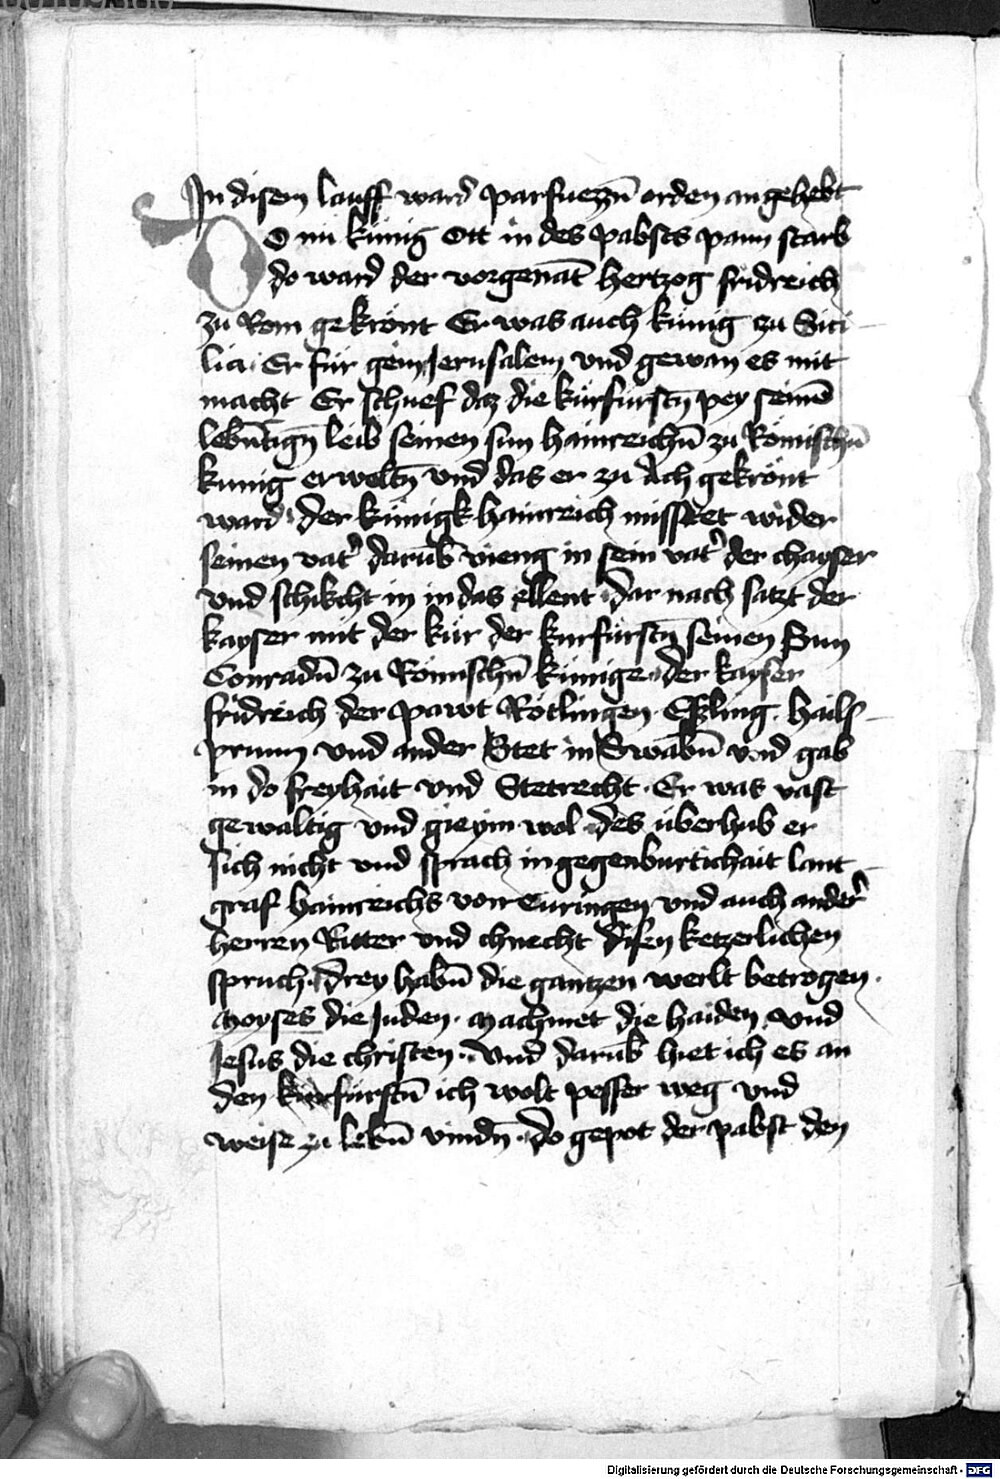 In disem lauff ward parfuezzn̄ orden angehebt
DO nu künig Ott in des pabsts pann starb
do ward der vorgenāt hertzog fridreich
zu Rom gekrönt Er was auch künig zu Sici
lia. Er für gein Jerusalem vnd gewan es mit
macht Er schuef daz die kürfürstn̄ pey seinē
lebn̄tign̄ leib seinen sun hainreichn̄ zu Römischn̄
kunig erweltn̄ vnd das er zu Ach gekrönt
ward. der künigk hainreich misstet wider
seinen vat' darūb vieng in sein vat' der chayser
vnd schikcht in in das ellent. dar nach satzt der
kayser mit der kür der kurfürstn̄ seinen Sun
Conradn̄ zu Römischn̄ künige. der kayser
fridreich der pawt Rötlingen. Essling. hails
prunn vnd ander Stet in Swabn̄ vnd gab
in do freyhait vnd Stetrecht. Er was vast
gewaltig vnd gieng im wol des überhub er
sich nicht vnd sprach in gegenburtichait lant
graf hainreichs von Türingen vnd auch ander'
herren Ritter vnd chnecht disen ketzerlichen
spruch. drey habn̄ die gantzen werlt betrogen.
Moyses die Juden. Machmet die haiden vnd
Jesus die christen. vnd darūb hiet ich es an
den kürfürstn̄ ich wolt pesser weg vnd
weise zu lebn̄ vindn̄. do gepot der pabst den
Digitalisierung gefördert durch die Deutsche Forschungsgemeinschaft - DFG